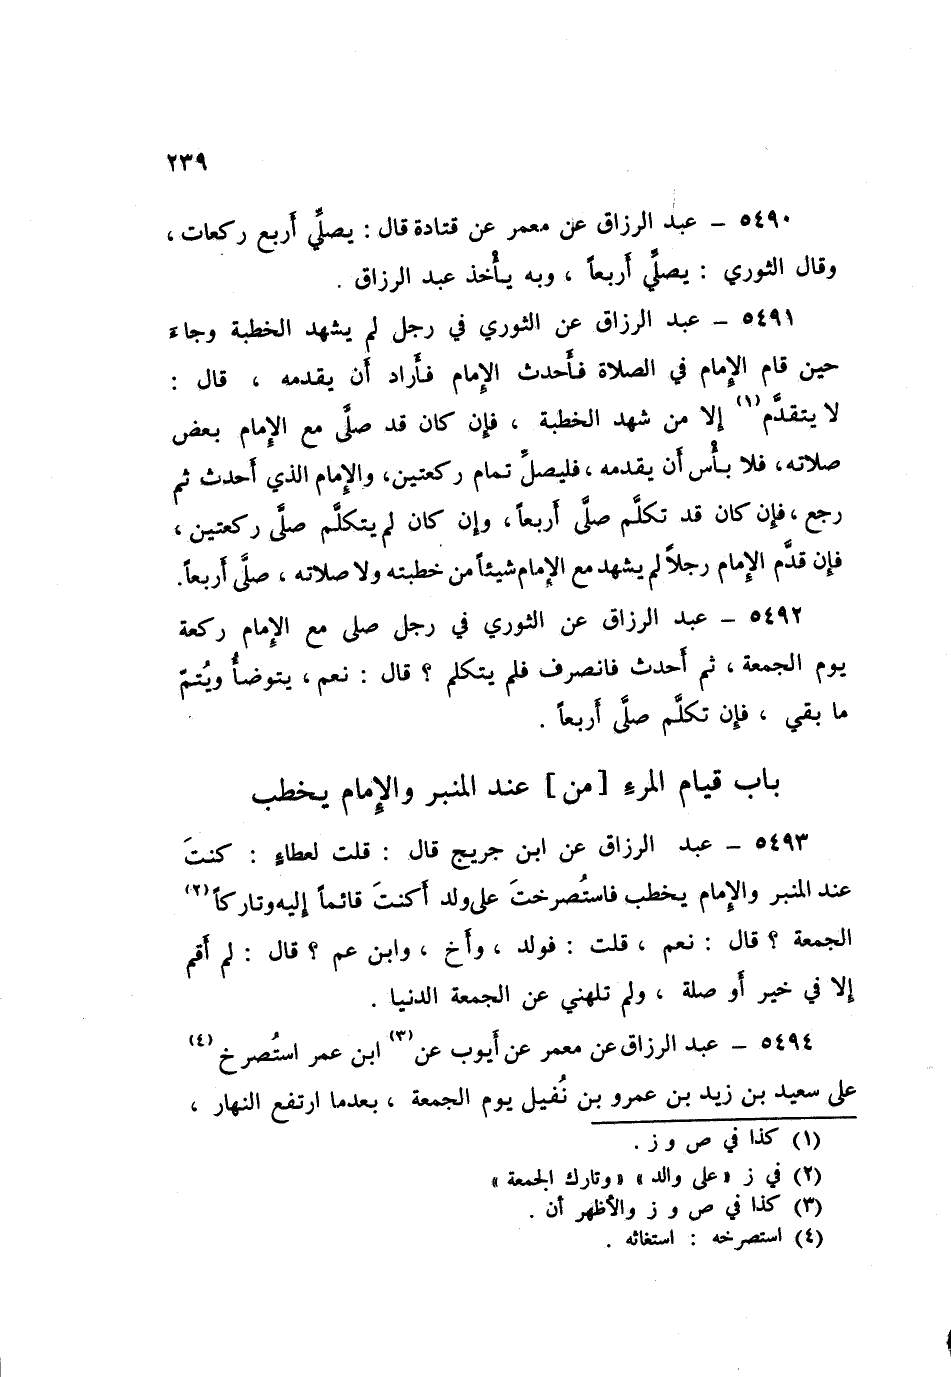 ٢٣٩
٥٤٩٠ – عبد الرزاق عن معمر عن قتادة قال : يصلِّي أربع ركعات ،
وقال الثوري : يصلِّي أربعاً ، وبه يأْخذ عبد الرزاق .
٥٤٩١ – عبد الرزاق عن الثوري في رجل لم يشهد الخطبة وجاءَ
حين قام الإمام في الصلاة فأَحدث الإمام فأَراد أَن يقدمه ، قال :
لا يتقدَّم (١) إلا من شهد الخطبة ، فإن كان قد صلَّى مع الإمام بعض
صلاته، فلا بأْس أَن يقدمه ، فليصلِّ تمام ركعتين، والإمام الذي أَحدث ثم
رجع ، فإن كان قد تكلَّم صلَّى أَربعاً ، وإن كان لم يتكلَّم صلَّى ركعتين ،
فإن قدَّم الإمام رجلاً لم يشهد مع الإمام شيئاً من خطبته ولا صلاته ، صلَّى أَربعاً.
٥٤٩٢ – عبد الرزاق عن الثوري في رجل صلى مع الإمام ركعة
يوم الجمعة ، ثم أَحدث فانصرف فلم يتكلم ؟ قال : نعم ، يتوضأُ ويُتمّ
ما بقي ، فإن تكلَّم صلَّى أَربعاً .
باب قيام المرء [من] عند المنبر والإمام يخطب
٥٤٩٣ – عبد الرزاق عن ابن جريج قال : قلت لعطاءٍ : كنتَ
عند المنبر والإمام يخطب فاستُصرختَ على ولد أَكنتَ قائماً إليه وتاركاً (٢)
الجمعة ؟ قال : نعم ، قلت : فولد ، وأَخ ، وابن عم ؟ قال : لم أَقم
إلا في خير أَو صلة ، ولم تلهني عن الجمعة الدنيا .
٥٤٩٤ – عبد الرزاق عن معمر عن أَيوب عن (٣) ابن عمر استُصرخ (٤)
على سعيد بن زيد بن عمرو بن نُفيل يوم الجمعة ، بعدما ارتفع النهار ،
(١) كذا في ص و ز .
(٢) في ز «على والد» «وتارك الجمعة»
(٣) كذا في ص و ز والأظهر أن .
(٤) استصرخه : استغاثه .